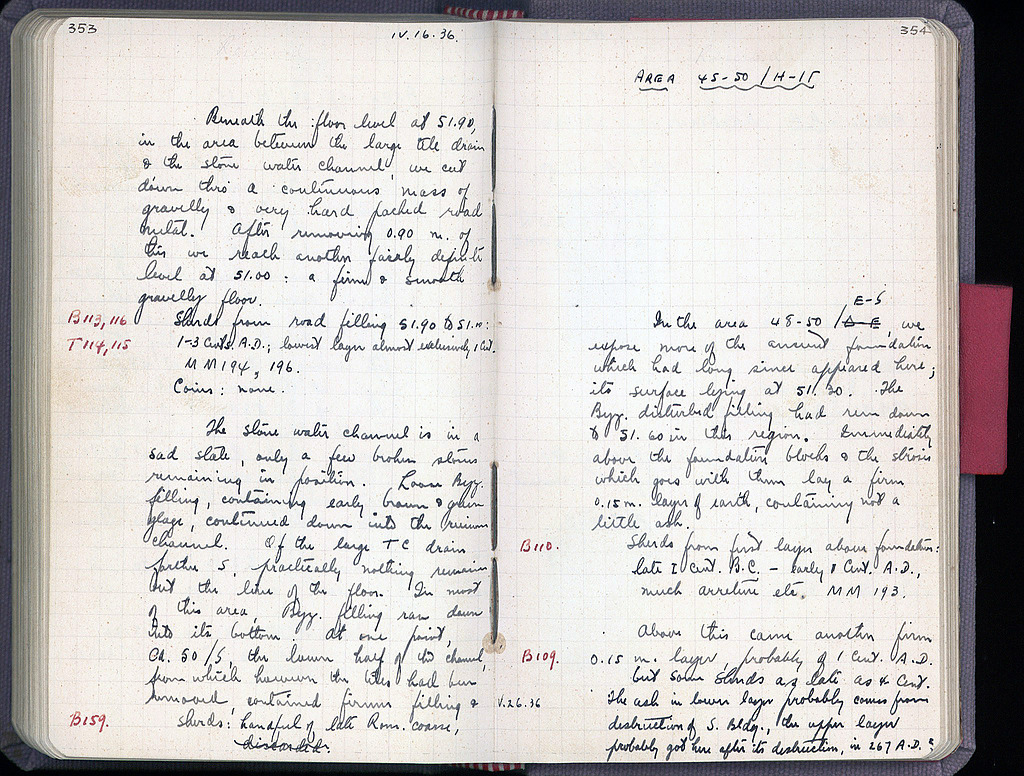 353
IV.16.36.
Beneath the floor level at 51.90,
in the area between the large tile drain
& the stone water channel, we cut
down thro' a continuous mass of
gravelly & very hard packed road
metal. After removing 0.90 m. of
this we reach another fairly definite
level at 51.00: a firm & smooth
gravelly floor.
B113, 116 Sherds from road filling 51.90 to 51.00:
T114, 115 1-3 Cents. A.D.; lowest layer almost exclusively, 1 Cent.
MM 194, 196.
Coins: none.
The stone water channel is in a
sad state, only a few broken stones
remaining in position. Loose Byz.
filling, containing early brown & green
glaze, continued down into the
channel. Of the large TC drain
farther S, practically nothing remains
but the line of the floor. In most
of this area, Byz. filling ran down
into its bottom. At one point,
Ca. 50/5, the lower half of the channel,
from which however the tiles had been
removed, contained firmer filling &
B159. sherds: handful of late Rom. coarse,
discarded.
354
AREA 45-50 / H-IE
E-S
In the area 48-50 / Δ-E, we
expose more of the ancient foundation
which had long since appeared here;
its surface lying at 51.30. The
Byz. disturbed filling had run down
to 51.60 in this region. Immediately
above the foundation blocks & the
which goes with them lay a firm
0.15 m. layer of earth, containing not a
little ash.
B110. Sherds from first layer above foundation:
late I Cent. B.C. – early I Cent. A.D.,
much arretine etc. MM 193.
Above this came another firm
B109. 0.15 m. layer, probably of 1 Cent. A.D.
but some sherds as late as 4 Cent.
V.26.36 The ash in lower layer probably comes from
destruction of S. Bldg., the upper layer
probably got here after its destruction, in 267 A.D.?